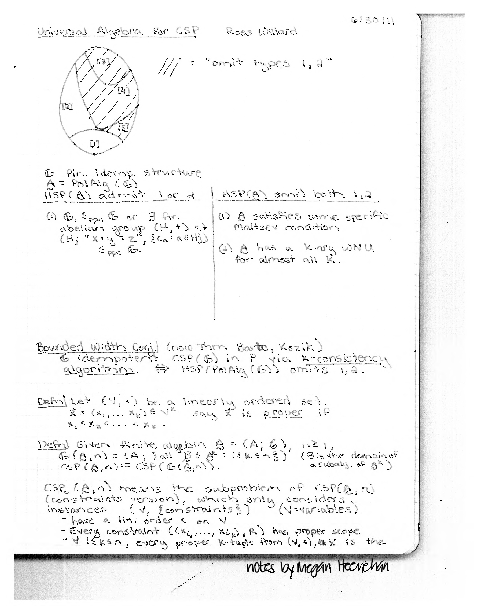 6/30/11
Universal Algebra for CSP Ross Willard
/// = "omit types 1, 2"
Fin. idemp. structure
A = PolAlg (G)
HSP(A) admit 1 or 2
HSP(A) omit both 1,2
or ∃ fin.
abelian group (H, +) s.t.
(H; "x+y=z", {Ca: a∈H})
(1) A satisfies some specific
Maltsev condition
(2) A has a k-ary WNU
for almost all k.
Bounded Width Conj. (now Thm. Barto, Kozik)
G idempotent: CSP(G) in P via k-consistency
algorithm. ⇔ HSP(PolAlg(G)) omits 1, 2.
Defn Let (V, <) be a linearly ordered set.
say x is proper if
Defn Given finite algebra A = (A; G),
(B is the domain of
a subalg. of
CSP(A,n) := CSP(G(A,n)).
means the subproblem of CSP(A,n)
(constraints version), which only considers
instances (V, {constraints}) (V=variables)
- have a lin. order < on V
- Every constraint has proper scope
every proper k-tuple from (V,<), is the
notes by Megan Heenehan